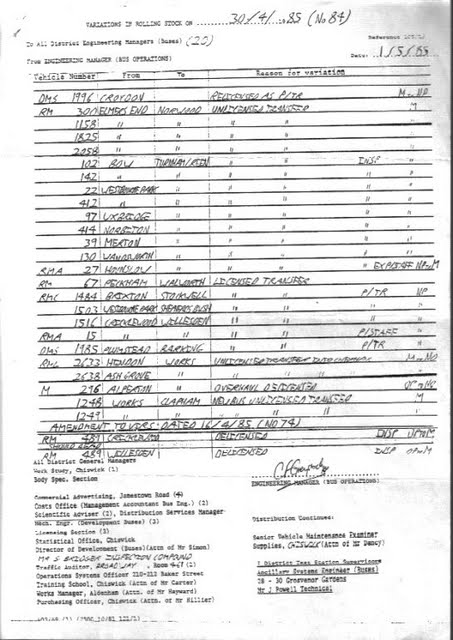 VARIATIONS IN ROLLING STOCK ON 30/4/85 (No 84)
To All District Engineering Managers (Buses) (20)
Reference
From ENGINEERING MANAGER (BUS OPERATIONS)
Date: 1/5/85
Vehicle Number From To Reason for variation
DMS 1996 CROYDON RELICENSED AS P/TR M to NP
RM ELMERS END NORWOOD UNLICENSED TRANSFER M
1158 " " " " "
1825 " " " " "
2058 " " " " "
102 BOW TURNHAM GREEN " " INSP "
142 " " " " " "
22 WESTBOURNE PARK " " " " "
412 " " " " " "
97 UXBRIDGE " " " " "
414 NORBITON " " " " "
39 MERTON " " " " "
130 WANDSWORTH " " " " "
RMA 27 HOUNSLOW " " " EXP/STAFF NP to M
RM 67 PECKHAM WALWORTH LICENSED TRANSFER
RMC 1484 BRIXTON STOCKWELL " " P/TR NP
1503 WESTBOURNE PARK SHEPHERDS BUSH " " " "
1516 CRICKLEWOOD WILLESDEN " " " "
RMA 15 " " " " P/STAFF "
DMS 1985 PLUMSTEAD BARKING " " P/TR "
2633 HENDON WORKS UNLICENSED TRANSFER
2638 ASH GROVE " " " "
M 296 ALPERTON " OVERHAUL DELICENSED
1248 WORKS CLAPHAM NEW BUS UNLICENSED TRANSFER M
1249 " " " " " "
AMENDMENT TO VERS: DATED 16/4/85 (No 74)
RM 489 CRICKLEWOOD DELICENSED INSP OP to M
SHOULD READ
RM 489 WILLESDEN DELICENSED INSP OP to M
All District General Managers
Work Study, Chiswick (2)
Body Spec. Section
ENGINEERING MANAGER (BUS OPERATIONS)
Commercial Advertising, Jamestown Road (4)
Costs Office (Management Accountant Bus Eng.) (2)
Scientific Adviser (2), Distribution Services Manager
Mech. Engr. (Development Buses) (2)
Licensing Section (2)
Statistical Office, Chiswick
Director of Development (Buses)(Attn of Mr Simon)
INSPECTION COMPOUND
Traffic Auditor, BROADWAY, Room
Operations Systems Officer 210-212 Baker Street
Training School, Chiswick (Attn of Mr Carter)
Works Manager, Aldenham (Attn of Mr Hayward)
Purchasing Officer, Chiswick (Attn. of Mr Hillier)
Distribution Continues:
Senior Vehicle Maintenance Examiner
Supplies, CHISWICK (Attn of Mr Dancy)
Ancillary Systems Engineer (Buses)
28 - 30 Grosvenor Gardens
Mr J Powell Technical